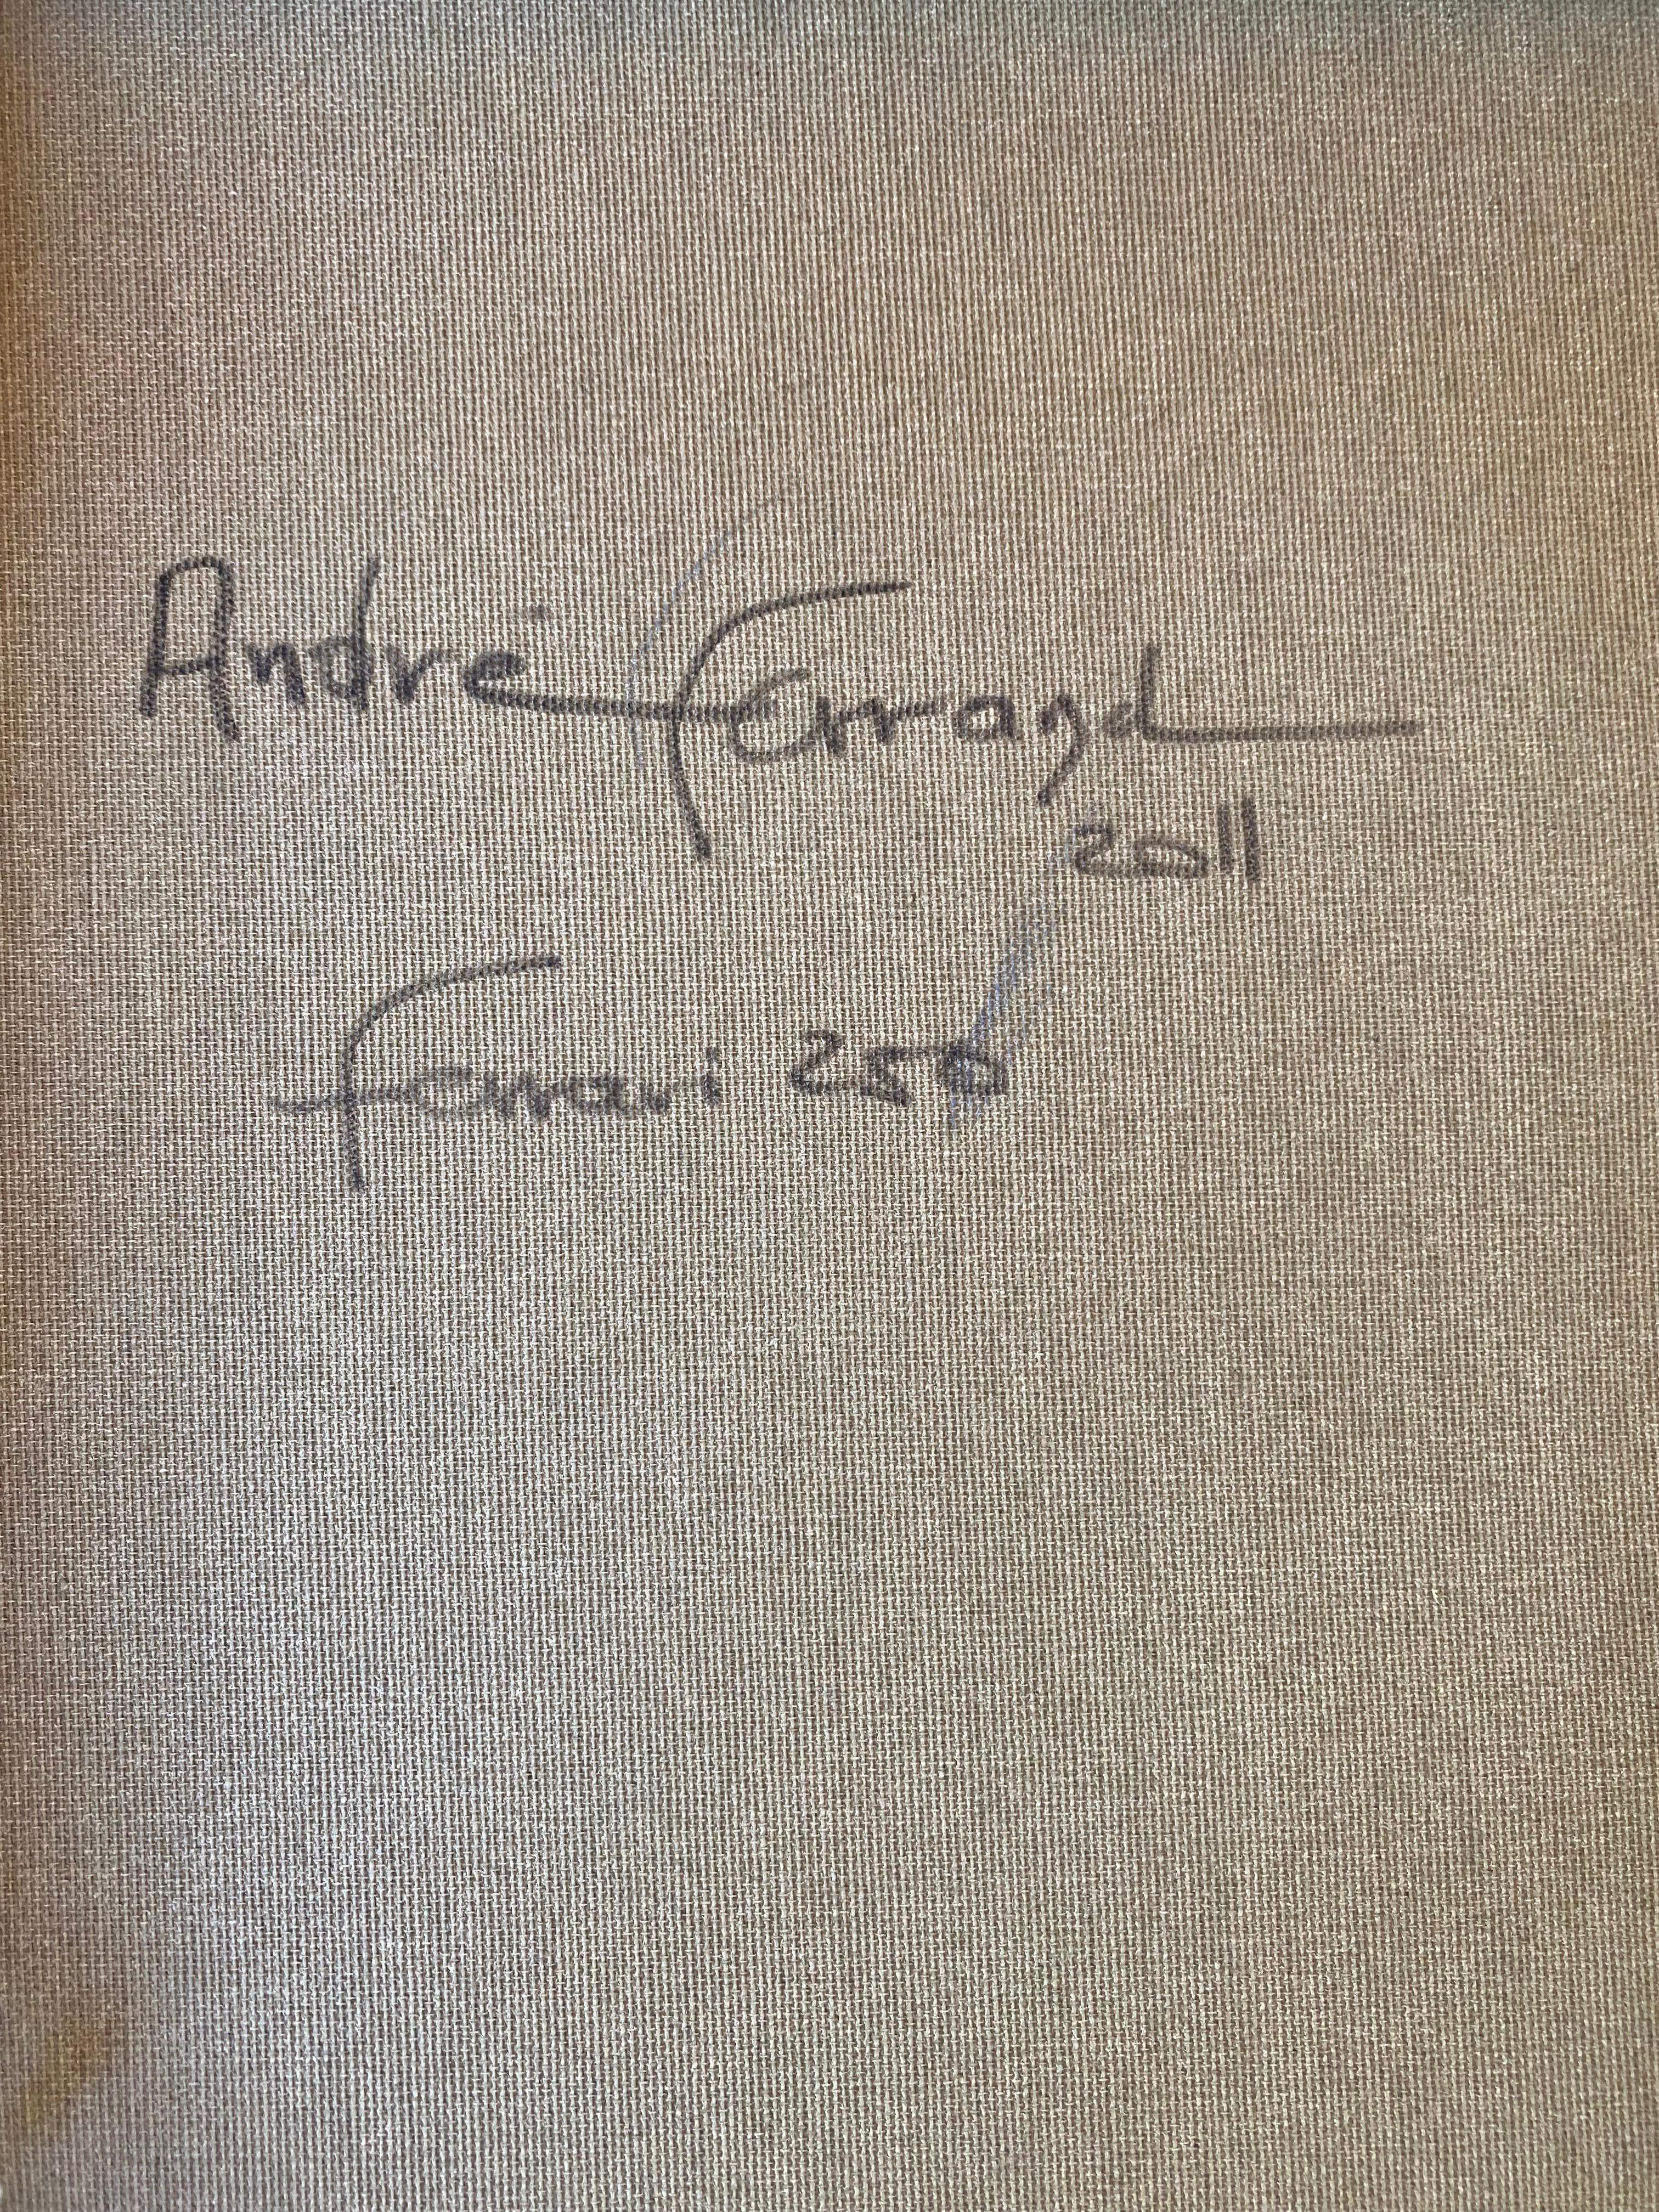 André Ferrand
2011
Ferrari 250